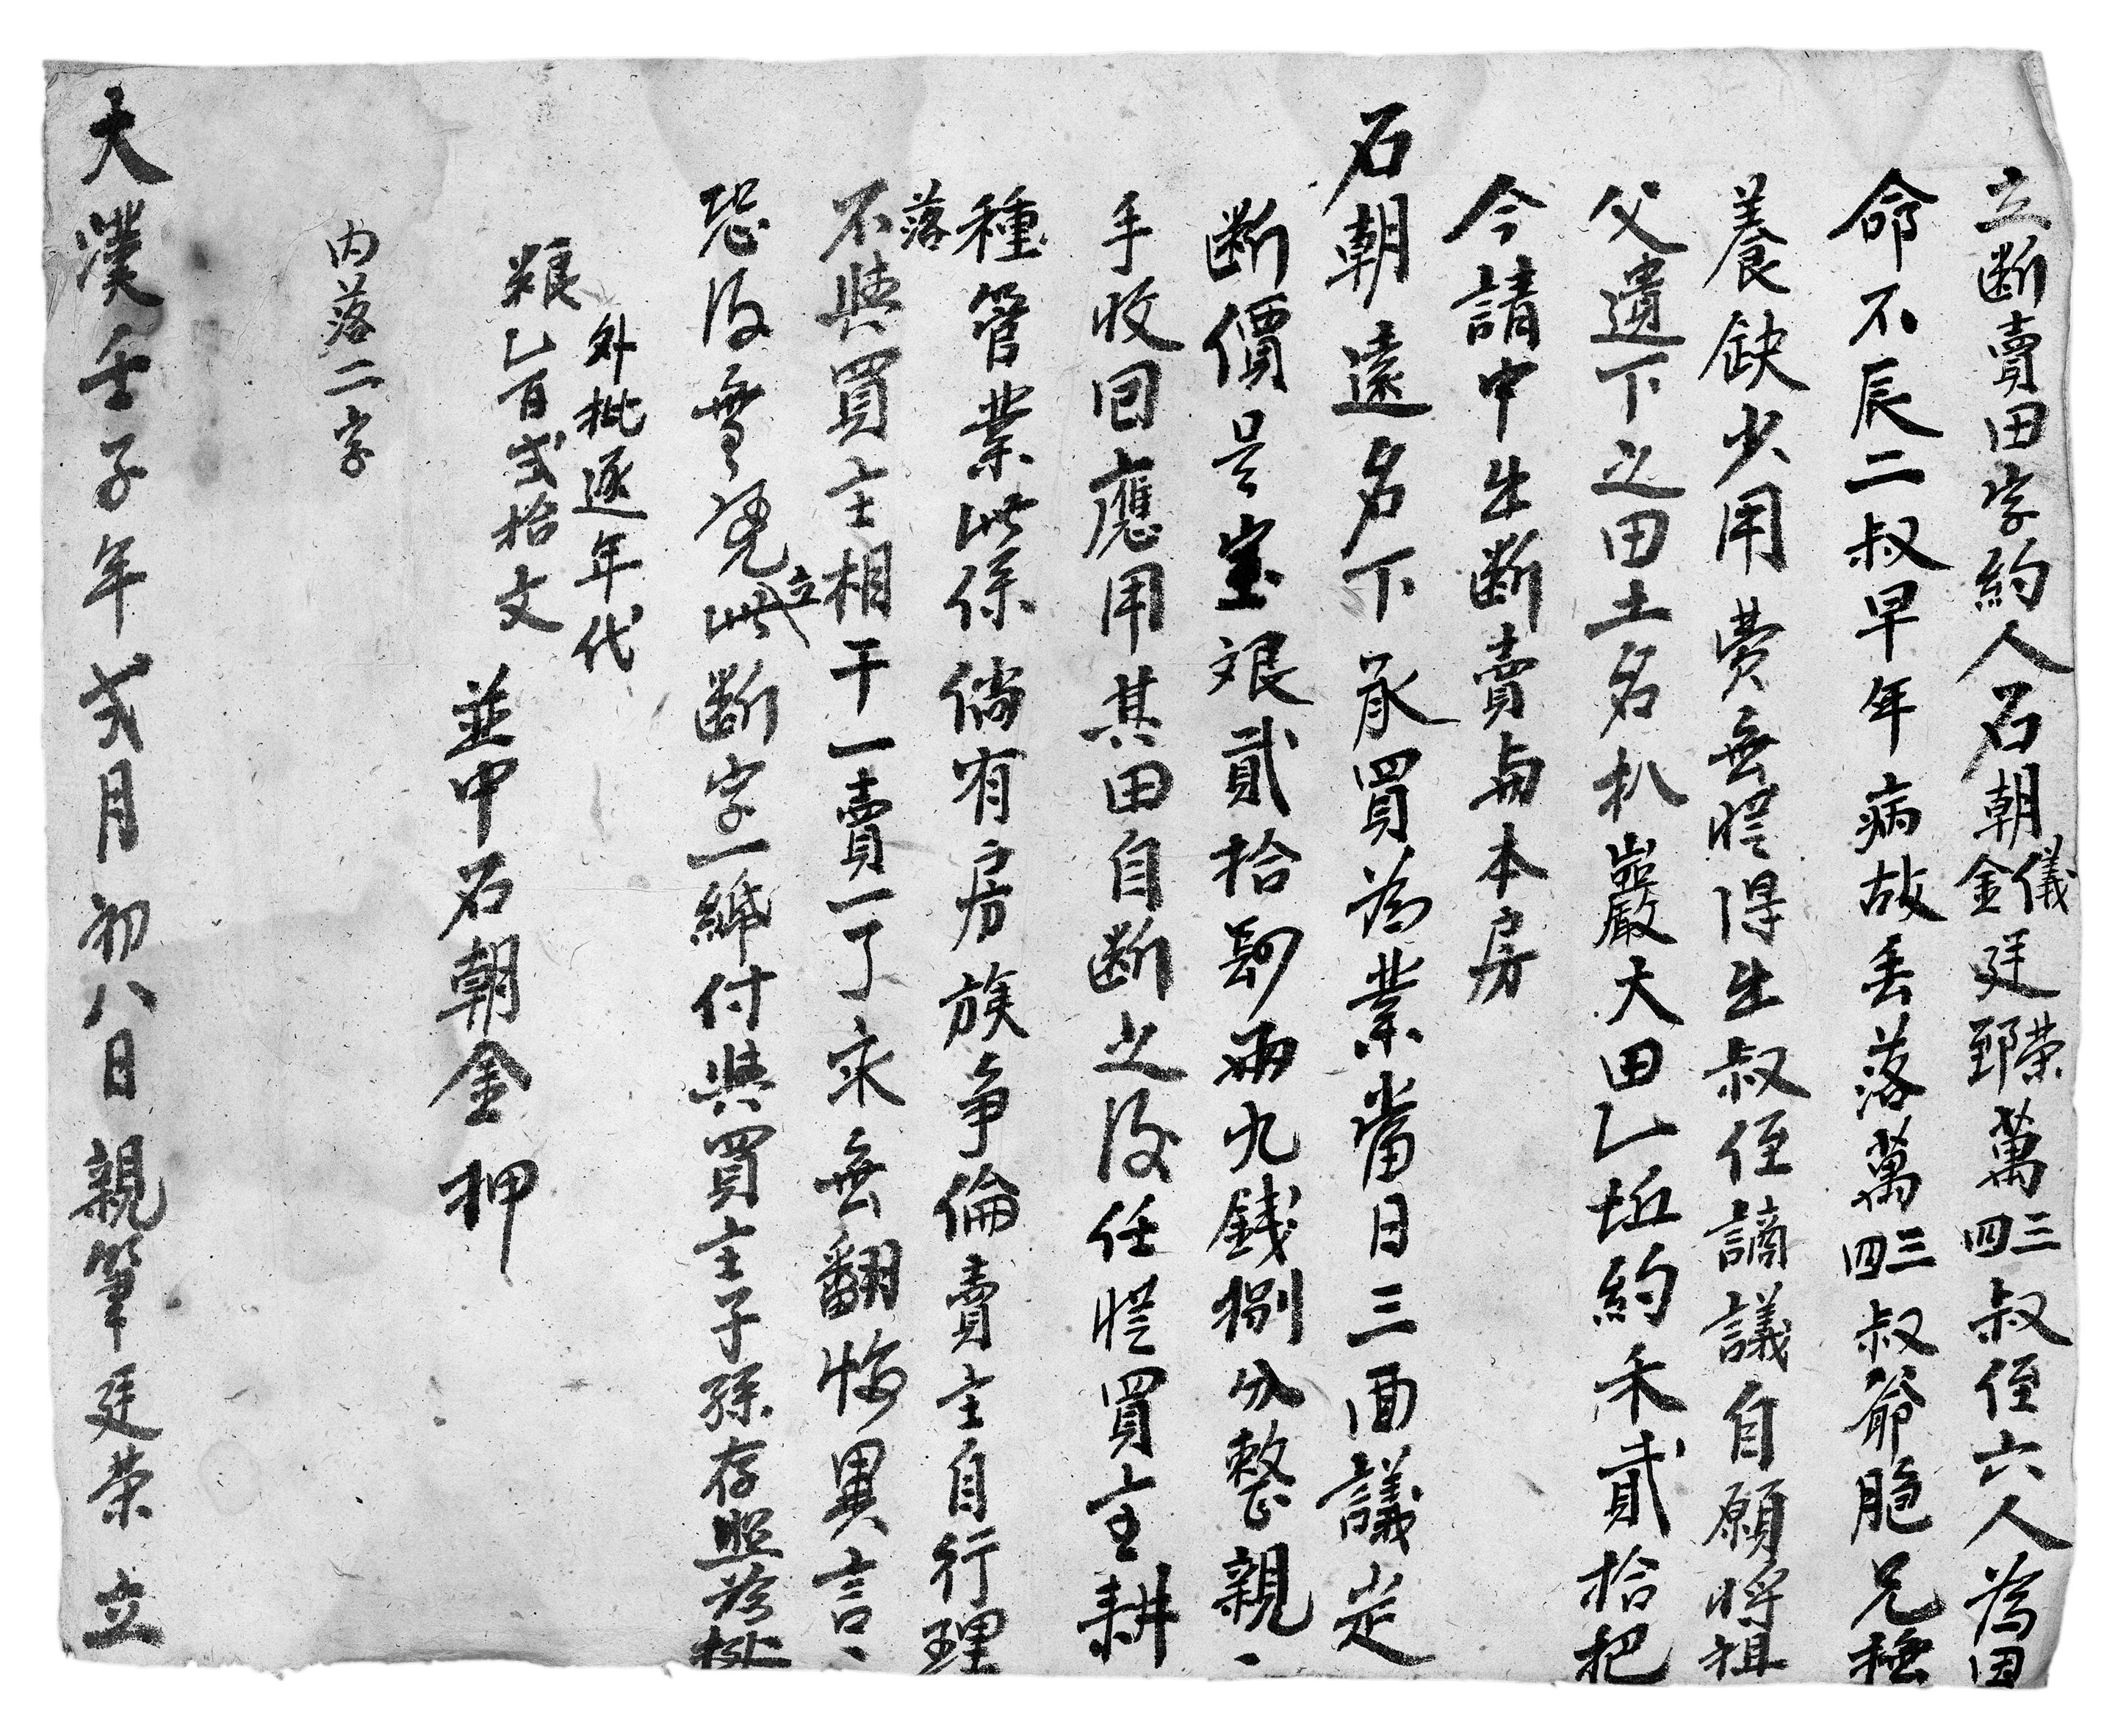 立断賣田字約人石朝儀金廷郅荣萬三四叔侄六人為因
命不辰二叔早年病故丢落萬三四叔爺胞兄
養缺少用費無從得出叔侄謫議自願将祖
父遺下之田土名扒巖大田乙坵約禾貳拾把
今請中出断賣与本房
石朝遠名下承買為業當日三面議定
断價是寔艮貳拾两九銭捌分整親、
手收回應用其田自断之後任從買主耕
種管業此係倘有房族争倫賣主自行理
落
不與買主相干一賣一了永無翻悔異言、
恐後無凭立此断字一紙付與買主子孫存照為
外批逐年代
粮乙百弍拾文
並中石朝金押
内落二字
大漢壬子年弍月初八日親筆廷荣立